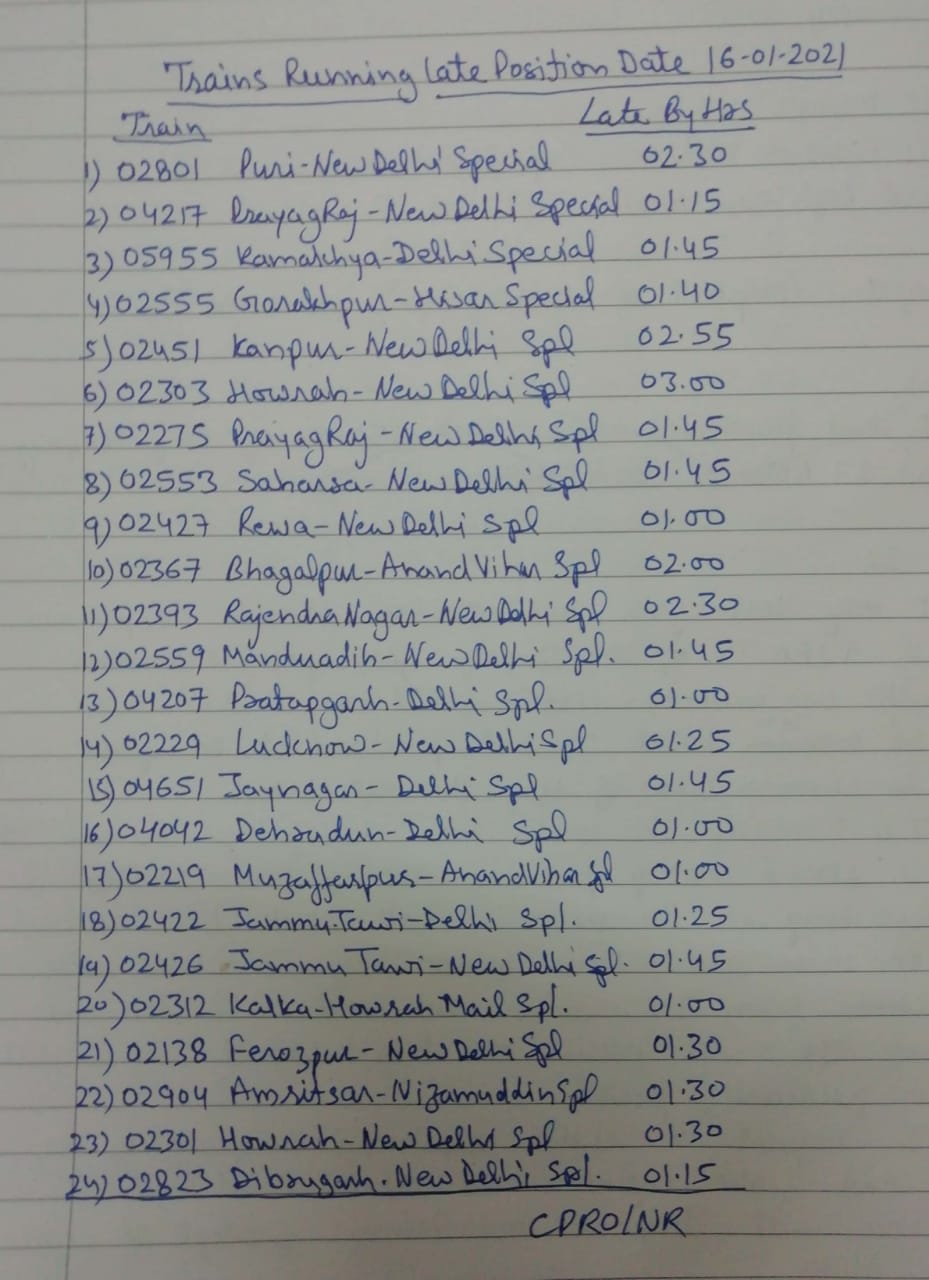 Trains Running Late Position Date 16-01-2021
Train Late By Hrs
1) 02801 Puri-New Delhi Special 02.30
2) 04217 PrayagRaj-New Delhi Special 01.15
3) 05955 Kamakhya-Delhi Special 01.45
4) 02555 Gorakhpur-Hisar Special 01.40
5) 02451 Kanpur-New Delhi Spl 02.55
6) 02303 Howrah-New Delhi Spl 03.00
7) 02275 PrayagRaj-New Delhi Spl 01.45
8) 02553 Saharsa-New Delhi Spl 01.45
9) 02427 Rewa-New Delhi Spl 01.00
10) 02367 Bhagalpur-Anand Vihar Spl 02.00
11) 02393 Rajendra Nagar-New Delhi Spl 02.30
12) 02559 Manduadih-New Delhi Spl. 01.45
13) 04207 Pratapgarh-Delhi Spl. 01.00
14) 02229 Lucknow-New Delhi Spl 01.25
15) 04651 Jaynagar-Delhi Spl 01.45
16) 04042 Dehradun-Delhi Spl 01.00
17) 02219 Muzaffarpur-Anand Vihar Spl 01.00
18) 02422 Jammu.Tawi-Delhi Spl. 01.25
19) 02426 Jammu Tawi-New Delhi Spl. 01.45
20) 02312 Kalka-Howrah Mail Spl. 01.00
21) 02138 Ferozpur-New Delhi Spl 01.30
22) 02904 Amritsar-Nizamuddin Spl 01.30
23) 02301 Howrah-New Delhi Spl 01.30
24) 02823 Dibrugarh.New Delhi Spl. 01.15
CPRO/NR